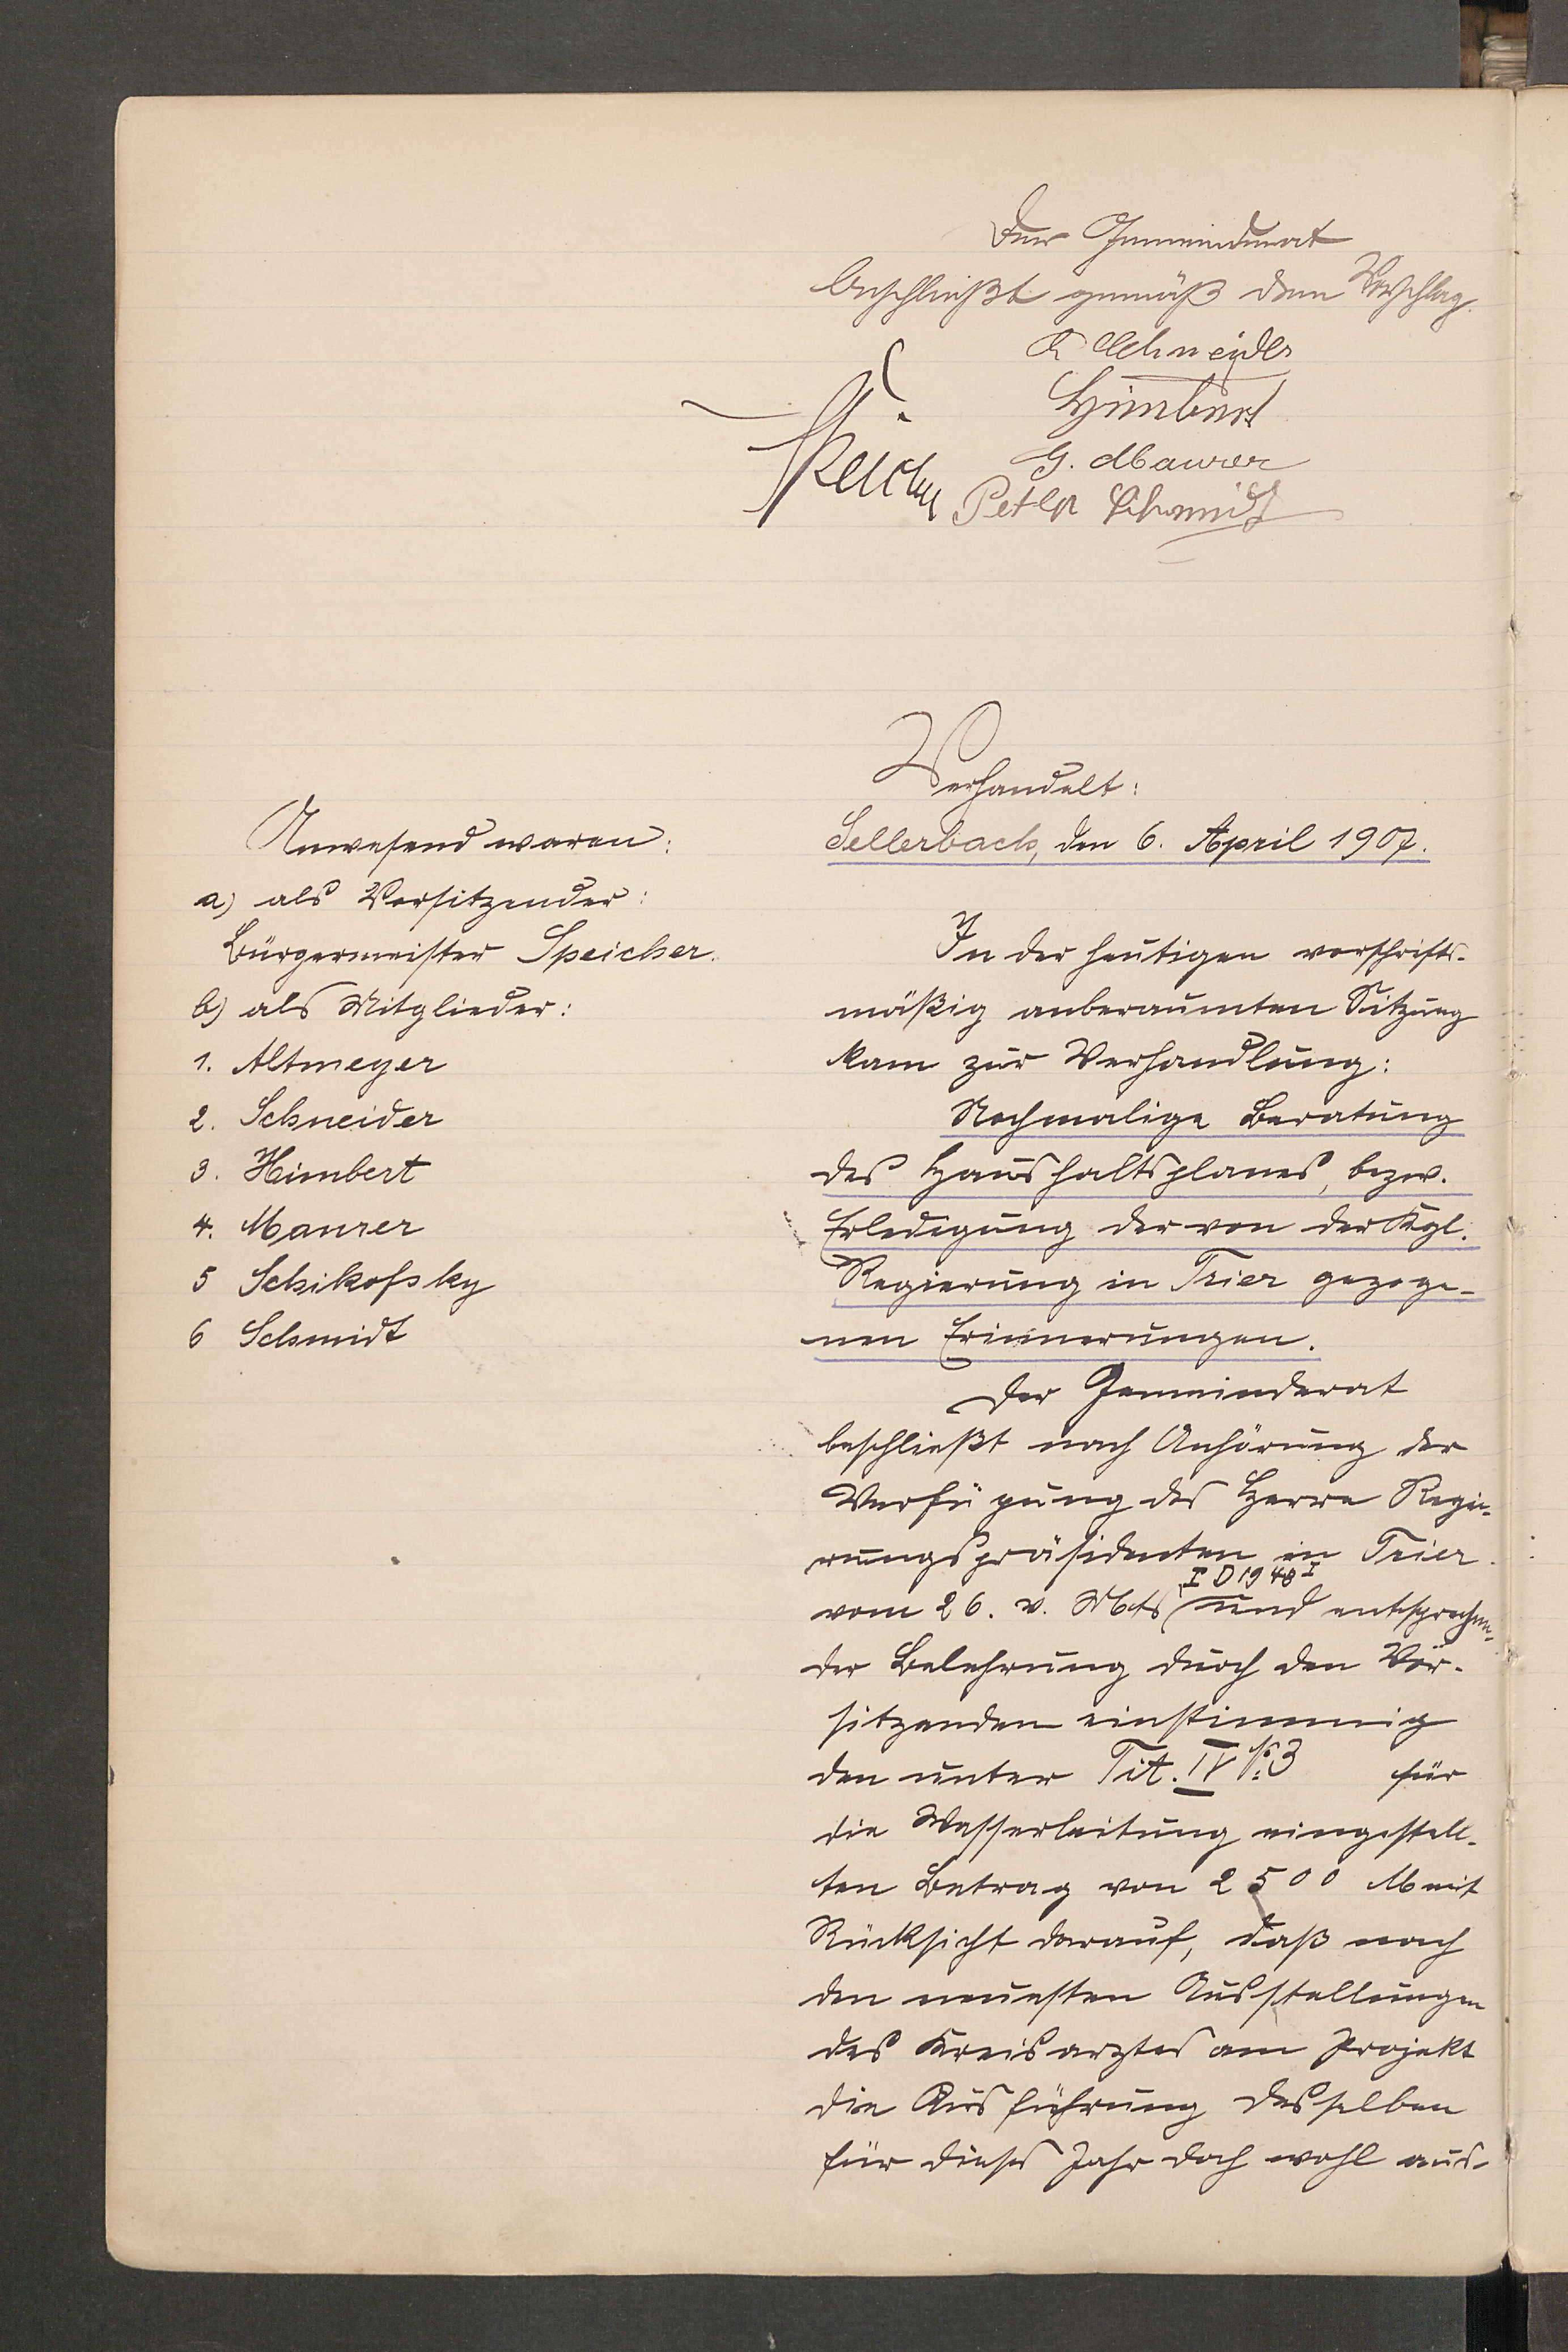 Der Gemeinderat
beschließt gemäß dem Vorschlag.
Schneider
Himbert
G. Maurer
Peter Schmidt
Speicher
Verhandelt:
Sellerbach, den 6. April 1907.
Anwesend waren:
a) als Vorsitzender:
Bürgermeister Speicher.
b) als Mitglieder:
1. Altmeyer
2. Schneider
3. Himbert
4. Maurer
5 Schikofsky
6 Schmidt
In der heutigen vorschrifts-
mäßig anberaumten Sitzung
kam zur Verhandlung:
Nochmalige Beratung
des Haushaltsplanes, bezw.
Erledigung der von der Kgl.
Regierung in Trier gezoge-
nen Erinnerungen.
Der Gemeinderat
beschließt nach Anhörung der
Verfügung des Herrn Regie-
rungspräsidenten in Trier
vom 26. v. Mts (I D 1948 I und entsprechen-
der Belehrung durch den Vor-
sitzenden einstimmig
den unter Tit. IV № 3 für
die Wasserleitung eingestell-
ten Betrag von 2500 M mit
Rücksicht darauf, daß nach
den neuesten Ausstellungen
des Kreisarztes am Projekt
die Ausführung desselben
für dieses Jahr doch wohl aus-